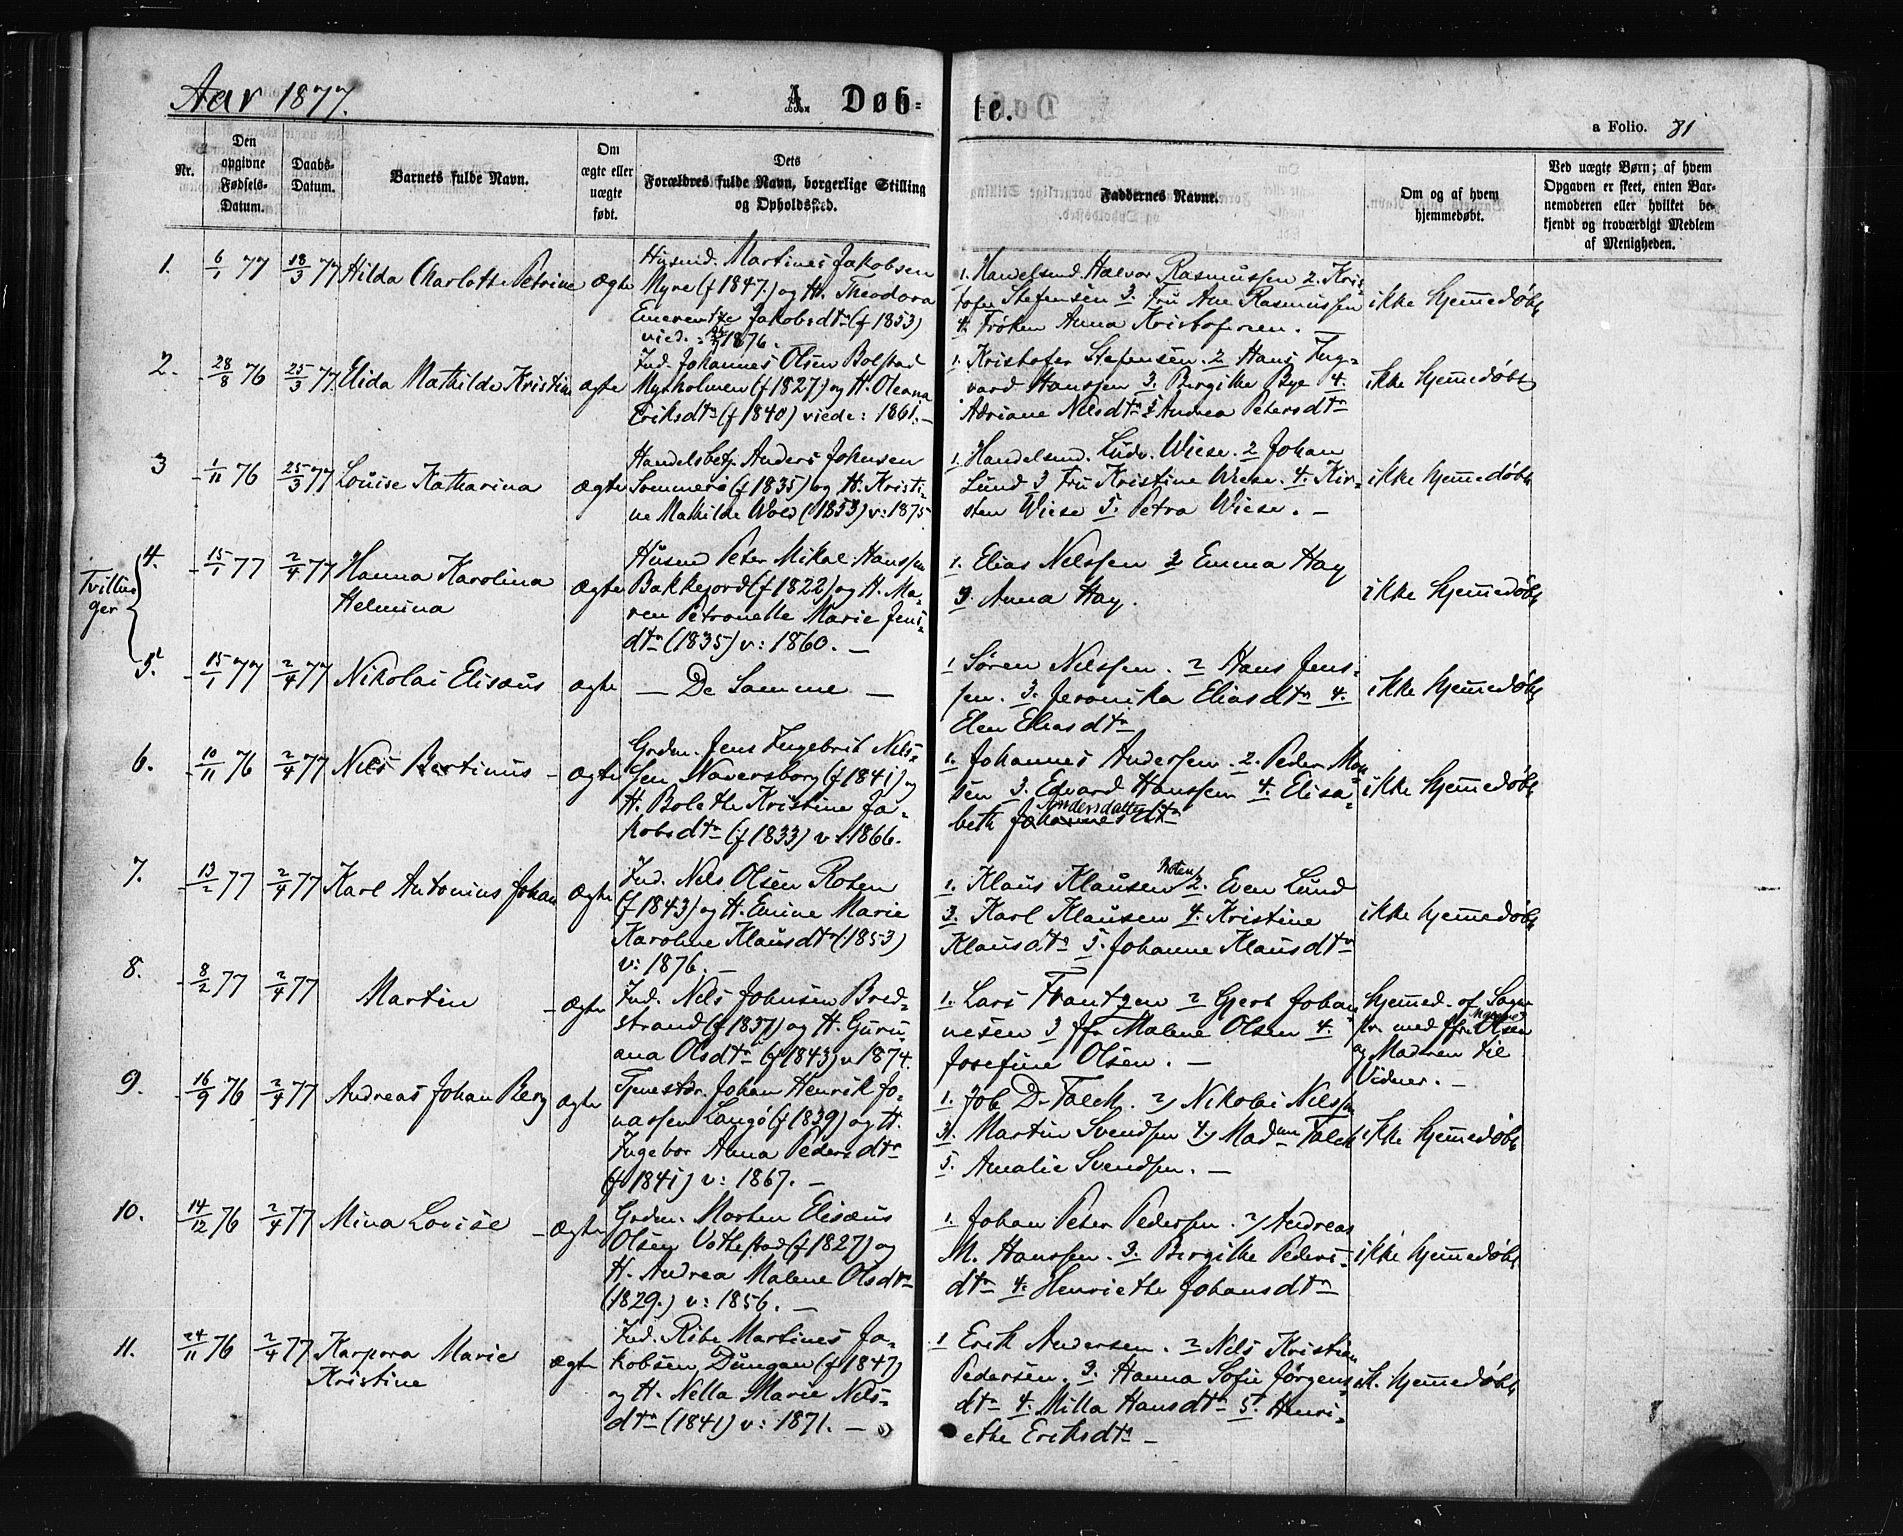 Aar 1877.
A. Døb-
te.
a Folio. 81
Nr.
Den
opgivne
Fødsels-
Datum.
Daabs-
Datum.
Barnets fulde Navn.
Om
ægte eller
uægte
født.
Dets
Forældres fulde Navn, borgerlige Stilling
og Opholdssted.
Faddernes Navne.
Om og af hvem
hjemmedøbt.
Ved uægte Børn; af hvem
Opgaven er skeet, enten Bar-
nemoderen eller hvilket be-
kjendt og troværdigt Medlem
af Menigheden.
1. 6/1 77 18/3 77 Hilda Charlotte Petrine ægte
Husmd. Martines Jakobsen
Myre (f 1847.) og H. Theodora
Emerentze Jakobsdtr (f 1853)
vied. 1876.
1. Handelsmd. Halvor Rasmussen 2. Kris-
tofer Stefensen 3. Fru Ane Rasmussen
4. Frøken Anna Kristofersen. —
ikke hjemmedøbt
2. 28/8 76 25/3 77. Elida Mathilde Kristine ægte
Ind. Johannes Olsen Bolstad
Myrholmen (f 1827) og H. Oleana
Eriksdtr (f 1840) viede: 1861. —
1. Kristofer Stefensen. 2 Hans Ing-
vard Hanssen 3. Bergithe Bye 4.
Adriane Nilsdtr 5 Andrea Petersdtr
ikke hjemmedøbt
3 1/11 76 25/3 77 Louise Katharina ægte
Handelsbetj. Anders Johnsen
Sommerø (f 1835) og H. Kristi-
ne Mathilde Wold (1853) v: 1875
1. Handelsmd. Ludv. Wiese. 2 Johan
Lund 3 Fru Kristine Wiese. 4. Kir-
sten Wiese 5. Petra Wiese. —
ikke hjemmedøbt
Tvillin-
ger
4. 15/1 77 2/4 77 Hanna Karolina
Helmina
ægte
Husmd Peter Mikal Hanssen
Bakkejord (f 1822) og H. Ma-
ren Petronelle Marie Jens-
dtr (1835) v: 1860. —
1. Elias Nilssen 2 Emma Hay
3 Anna Hay.
ikke hjemmedøbt
5. 15/1 77 2/4 77 Nikolai Elisæus ægte — De Samme —
1 Søren Nilssen. 2 Hans Jens-
sen. 3. Jeronika Eliasdtr 4.
Elen Eliasdtr
ikke hjemmedøbt
6. 10/11 76 2/4 77 Nils Bertinus - ægte
Grdm. Jens Ingebrit Nils-
sen, Naversborg (f 1841) og
H. Bolethe Kristine Ja-
kobsdtr (f 1833) v: 1866.
1. Johannes Andersen. 2. Peder Mon-
sen 3. Edvard Hanssen 4. Elisa-
beth Johannesdtr Andersdatter
ikke hjemmedøbt
7. 13/2 77 2/4 77 Karl Antonius Johan ægte
Ind. Nils Olsen Roten
(f 1843) og H. Emine Marie
Karoline Klausdtr (1853)
v: 1876. —
1. Klaus Klausen Roten 2. Even Lund
3. Karl Klausen 4. Kristine
Klausdtr 5. Johanne Klausdtr
ikke hjemmedøbt
8. 8/2 77 2/4 77 Martin - ægte
Ind. Nils Johnsen Bred-
strand (f 1837) og H. Guru-
ana Olsdtr (f 1843) v 1874.
1. Lars Frantzen 2 Gjert Johan-
nesen 3 Jfr Malene Olsen 4.
Josefine Olsen. —
hjemmed. af Sogne-
pr. med Jfr. Malene Olsen
og Moderen til
Vidner. —
9. 16/9 76 2/4 77 Andreas Johan Berg ægte
Tjenestkr. Johan Henrik Jo-
nassen Langø (f 1839) og H.
Ingebor Anna Pedersdtr
(f 1841) v: 1867. —
1. Job D. Falck. 2) Nikolai Nilssen
3. Martin Svendsen 4) Madam Falck
5. Amalie Svendsen. —
ikke hjemmedøbt
10. 14/12 76 2/4 77 Mina Lovise - ægte
Grdm. Morten Elisæus
Olsen Votnstad (f 1827) og
H. Andrea Malene Olsdtr
(1829.) v: 1856. —
1. Johan Peter Pedersen. 2) Andreas
M. Hanssen. 3. Bergithe Peders-
dtr 4. Henriethe Johansdtr
ikke hjemmedøbt
11. 24/11 76 2/4 77 Karpora Marie
Kristine
ægte
Ind. Ribe Martines Ja-
kobsen Dungan (f 1847)
og H. Nella Marie Nils-
dtr (1841) v: 1871. —
1 Erik Andersen. 2 Nils Kristian
Pedersen. 3. Hanna Sofie Jørgens-
dtr 4. Milla Hansdtr 5. Henri-
ethe Eriksdtr —
ik. hjemmedøbt